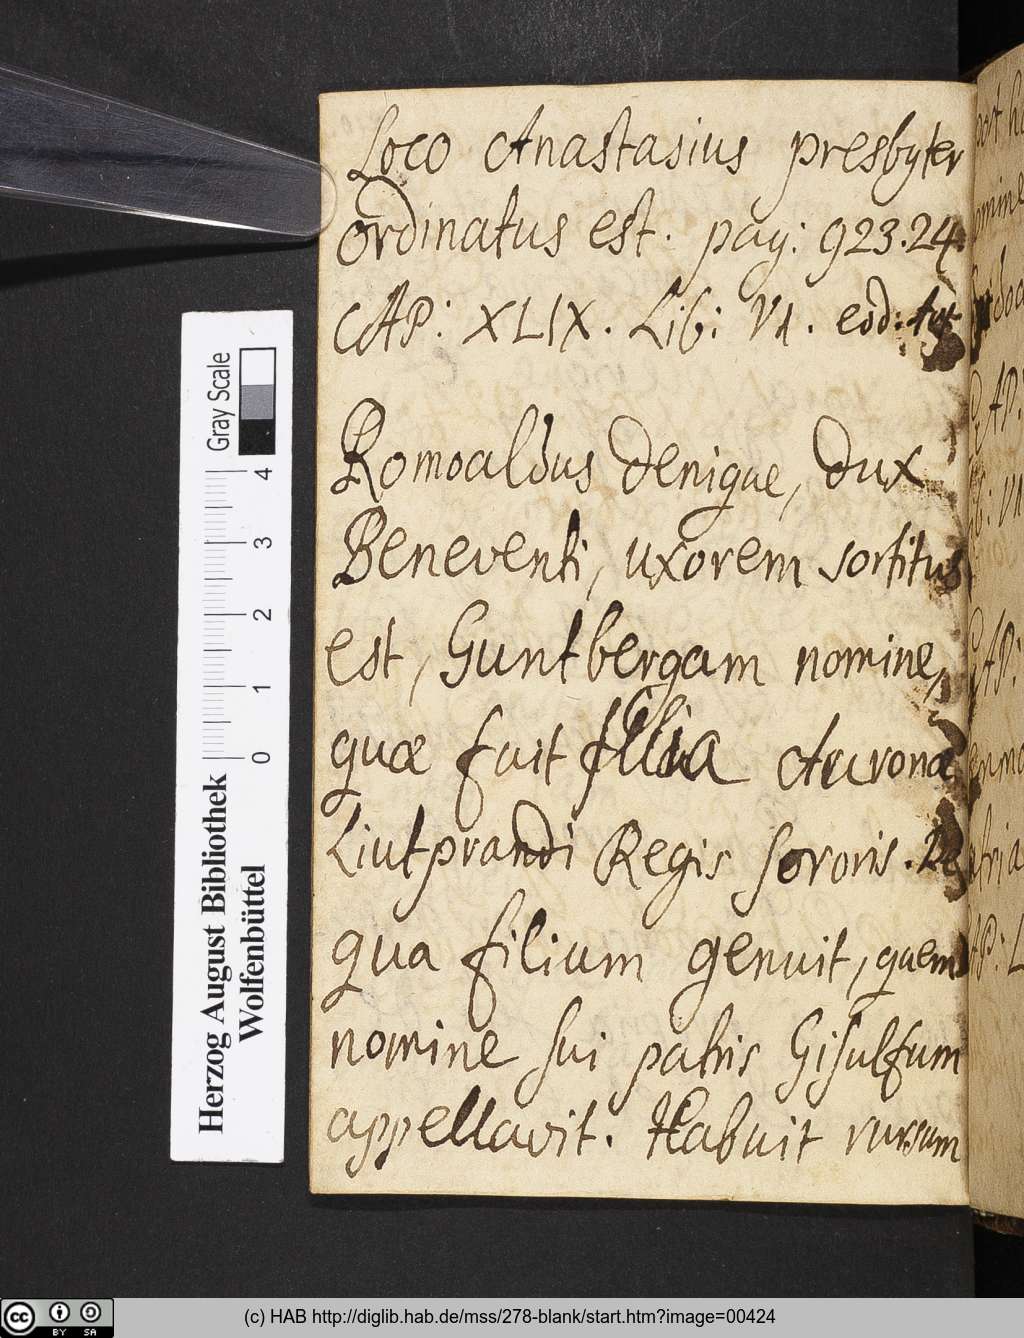 Loco Anastasius presbyter
ordinatus est. pag: 923.24.
CAP: XLIX. Lib: VI. eod:
Romoaldus denique, dux
Beneventi, uxorem sortitus
est, Guntbergam nomine,
quæ fuit filia Auronæ
Liutprandi Regis sororis. De
qua filium genuit, quem
nomine sui patris Gisulfum
appellavit. Habuit rursum
Herzog August Bibliothek
Wolfenbüttel
0 1 2 3 4
Gray Scale
cc BY SA
(c) HAB http://diglib.hab.de/mss/278-blank/start.htm?image=00424